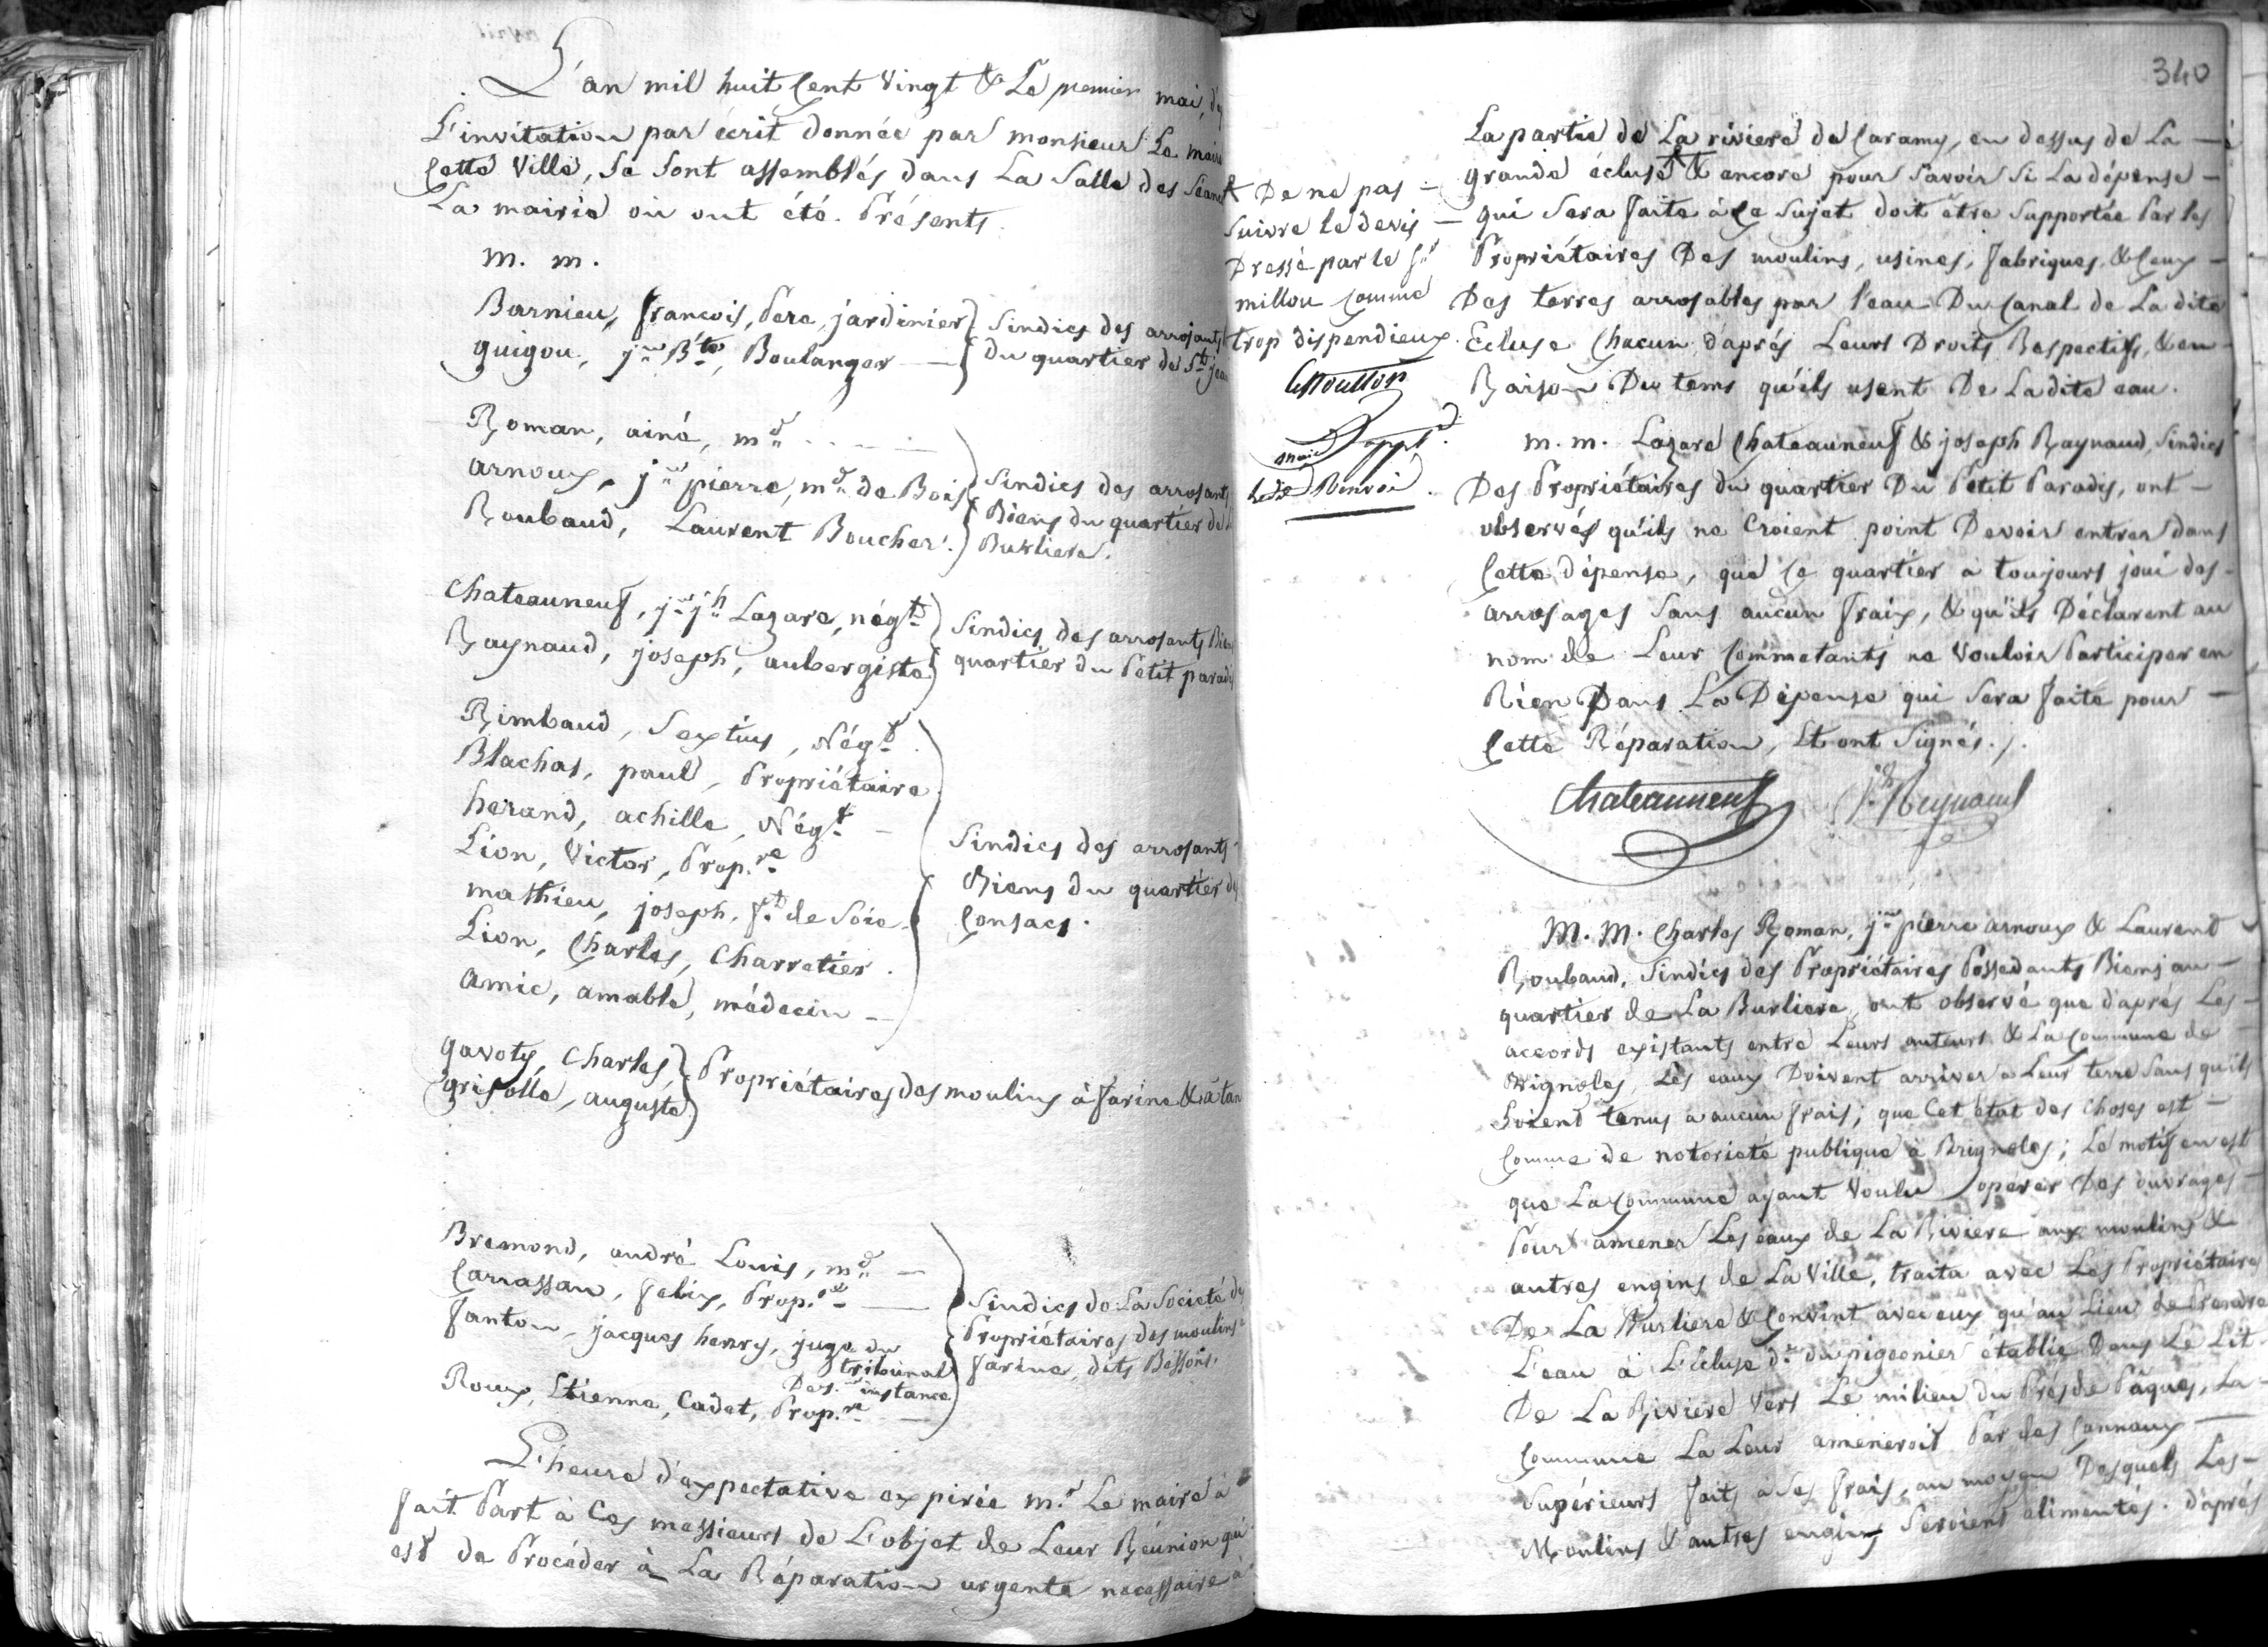 L'an mil huit Cent Vingt & Le premier mai, d'
L'invitation par écrit donnée par monsieur Le maire
Cette Ville, Se Sont assemblés dans La Salle des Séanc
La mairie où ont été. Présents.
m. m.
Barnieu, francois, Pere, jardinier } Sindics des arrosants
guigou, jn. Bte, Boulanger — } du quartier de St. jean
Roman, ainé, md.
arnoux, jn. pierre, md. de Bois } Sindics des arrosants
Roubaud, Laurent Boucher. } Biens du quartier de
Burliere.
Chateauneuf, jn. jh. Lazare, négt. } Sindics des arrosants Biens
Raynaud, joseph, aubergiste } quartier du Petit paradis
Rimbaud, Sextius, Négt.
Blachas, paul, Propriétaire.
herand, achille, Négt. —
Lion, Victor, Prop.re
Sindics des arrosants
mathieu, joseph, ft. de Soie.
Biens du quartier de
Lion, Charles, Charretier.
Consacs.
amic, amable, médecin —
gavoty, Charles, } Propriétaires des moulins à farine & à tan
grisolle, auguste }
Bremond, andré Louis, md. —
Carrassan, felix, Prop.re —
Sindics de La Societé de
fanton, jacques henry, juge du
tribunal
De 1.re instance
Propriétaires des moulins
farine, dits Bessons.
Roux, Etienne, Cadet, Prop.re —
L'heure d'expectative expirée m.r Le maire à
fait Part à Ces messieurs de L'objet de Leur Réunion qui
est de Procéder à La Réparation urgente necessaire à
340
La partie de La riviere de Caramy, en dessus de La —
grande écluse & encore pour Savoir Si La dépense —
qui Sera faite à Ce Sujet doit être Supportée Par les
Propriétaires Des moulins, usines, fabriques, & Ceux —
Des terres arrosables par l'eau Du Canal de La dite
Ecluse Chacun d'aprés Leurs Droits Respectifs, & en
Raison Du tems qu'ils usent De La dite eau.
De ne pas —
Suivre le devis —
Dressé par le Sr.
millou comme
trop dispendieux.
Moutton
maire
Renvoi
m. m. Lazare Chateauneuf & joseph Raynaud, Sindics
Des Propriétaires du quartier Du Petit Paradis, ont —
observés qu'ils ne Croient point Devoir entrer dans
Cette dépense, que Ce quartier à toujours joui des
arrosages Sans aucun fraix, & qu'ils Déclarent au
nom de Leur Commetants ne Vouloir Participer en
Rien Dans La Dépense qui Sera faite pour —
Cette Réparation, Et ont Signés./.
Chateauneuf jh Reynaud
M. M. Charles Roman, jn. pierre arnoux & Laurend
Roubaud, Sindics des Propriétaires Possedants Biens au —
quartier de La Burliere, ont observé que d'aprés Les —
accords existants entre Leurs auteurs & La Commune de
Brignoles, Les eaux Doivent arriver à Leur terre Sans qu'ils
Soient tenus à aucun frais; que Cet état des Choses est —
Comme de notorieté publique à Brignoles; Le motif en est
que La Commune ayant Voulu operer Des ouvrages —
Pour amener Les eaux de La Riviere aux moulins &
autres engins de La Ville, traita avec Les Propriétaires
De La Burliere & Convint avec eux qu'au Lieu de Prendre
L'eau à L'écluse d.te du pigeonier établie Dans Le Lit
De La Riviere Vers Le milieu du Prés de Pâques, La —
Commune La Leur ameneroit Par des Cannaux —
Supérieurs faits à Ses frais, au moyen Desquels Les —
Moulins & autres engins Seroient alimentés. d'aprés